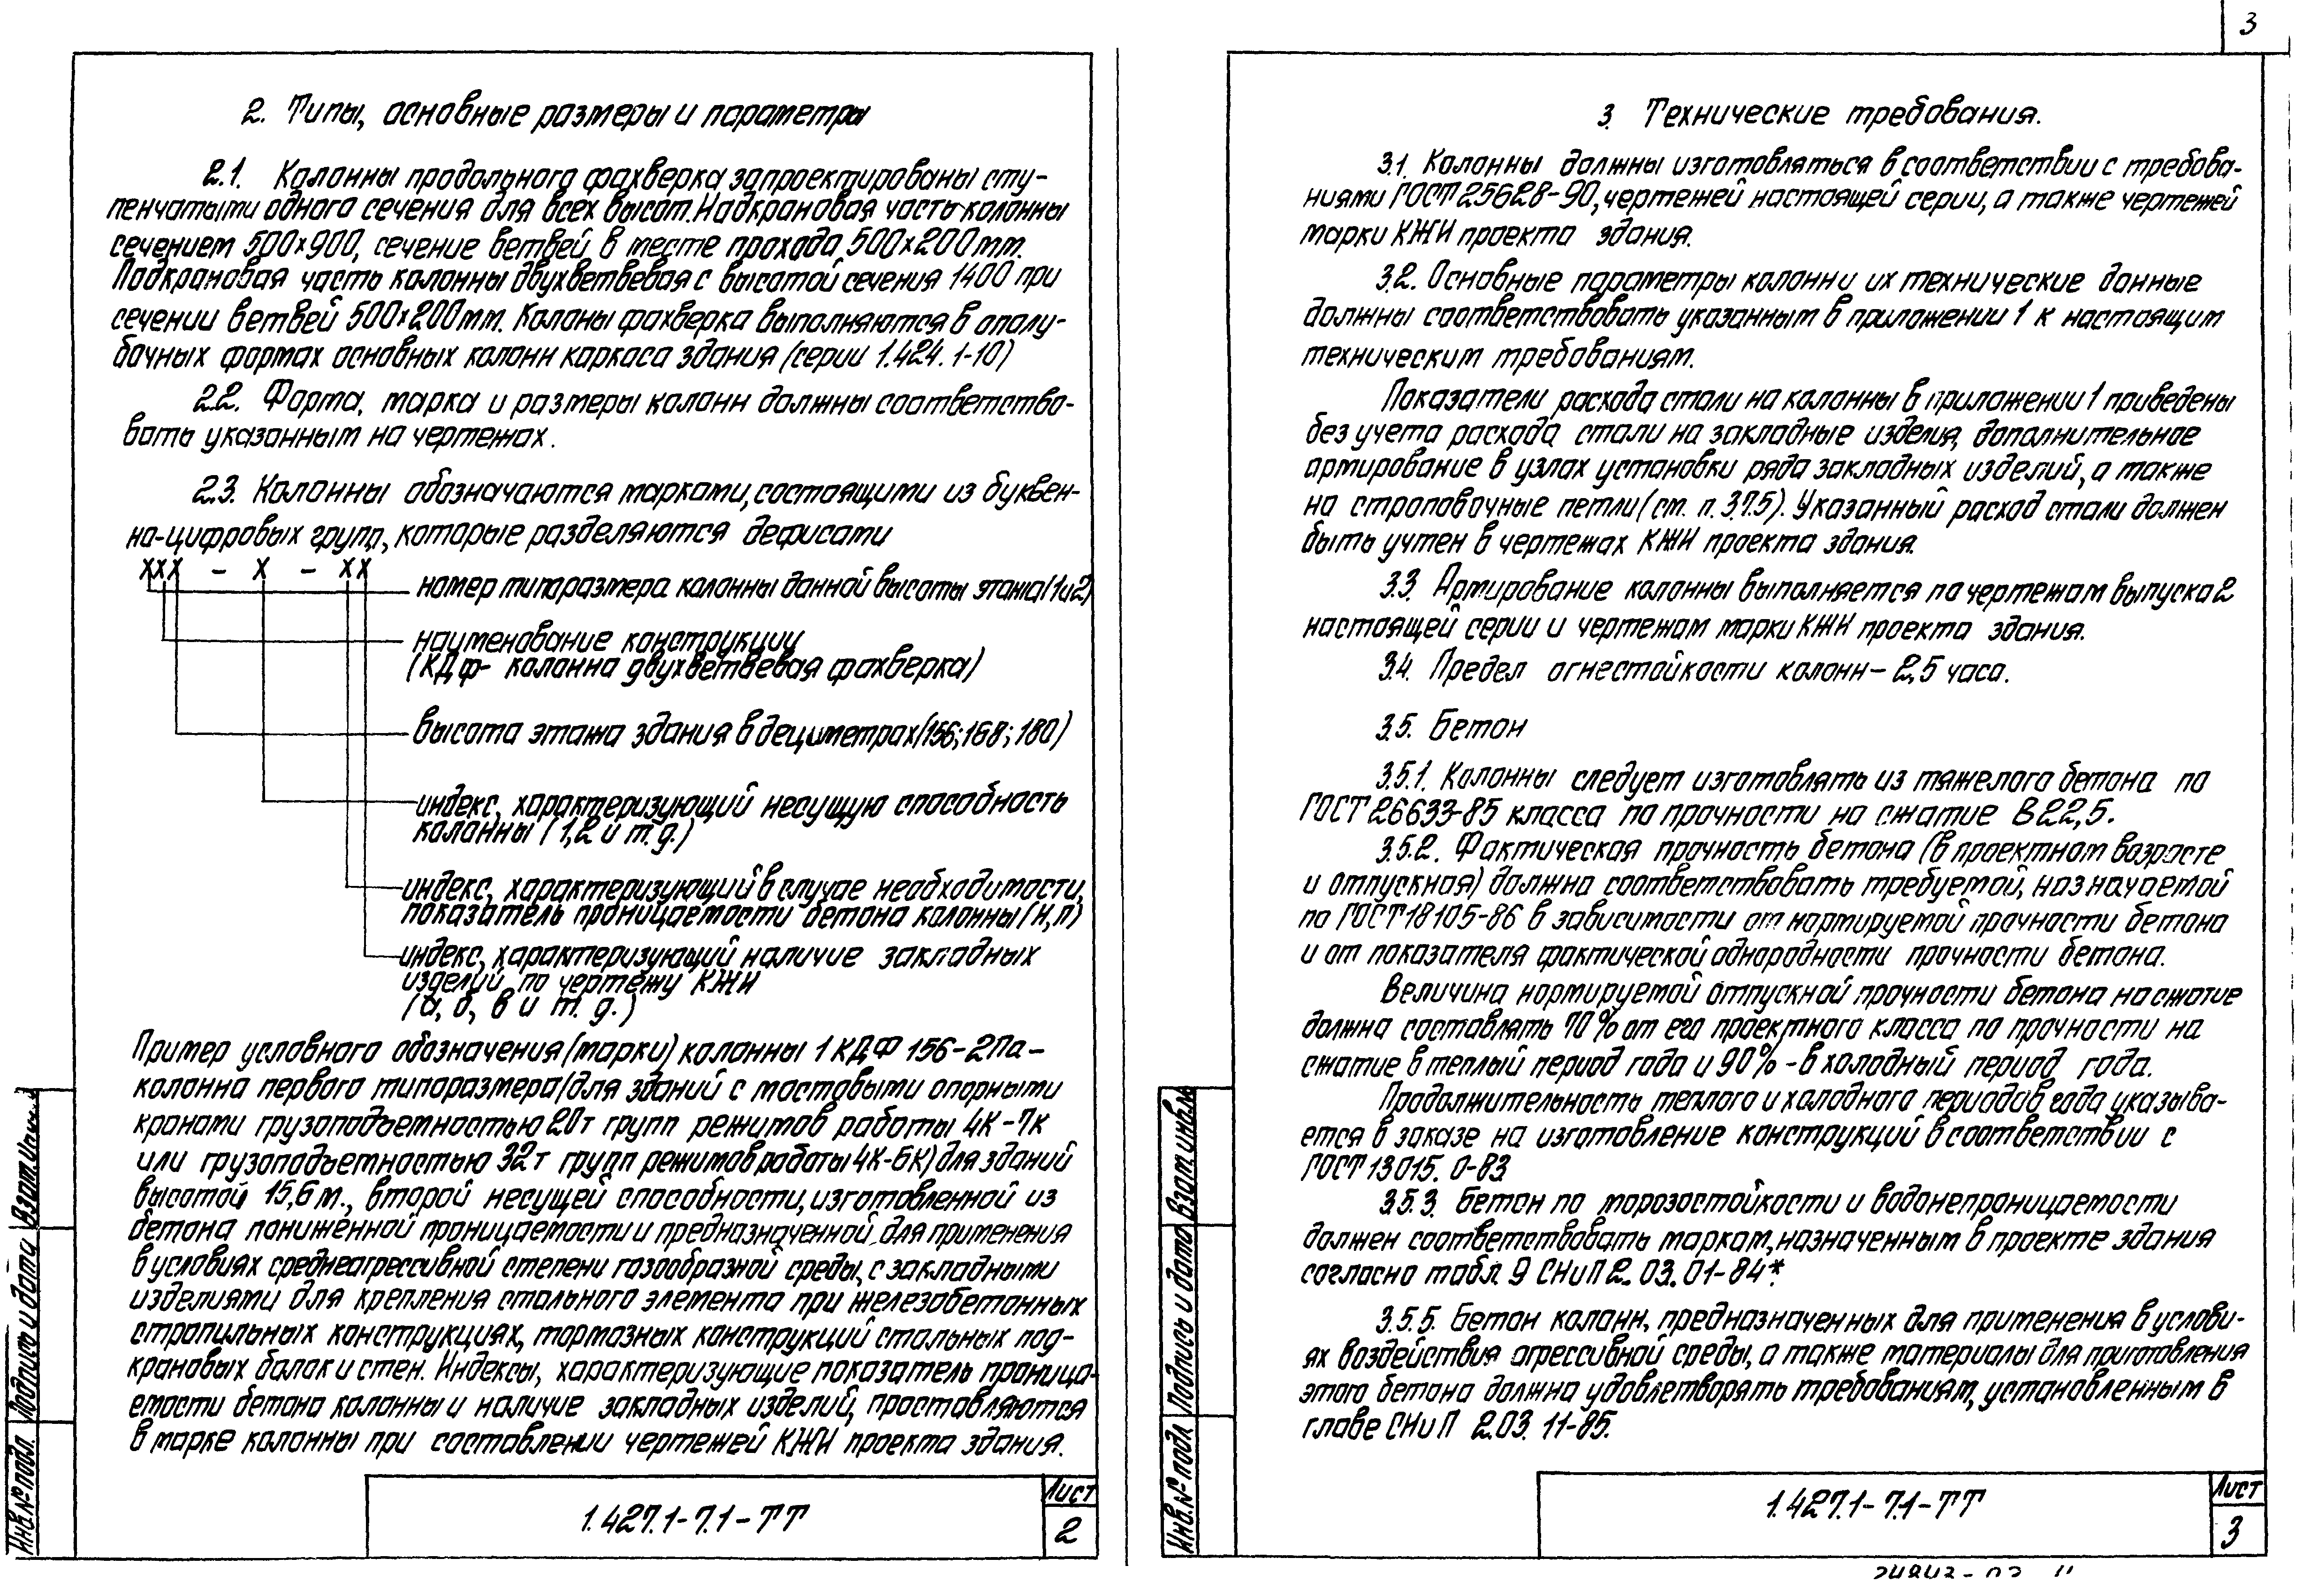 2. Типы, основные размеры и параметры
2.1. Колонны продольного фахверка запроектированы сту-
пенчатыми одного сечения для всех высот. Надкрановая часть колонны
сечением 500×900, сечение ветвей в месте прохода 500×200мм.
Подкрановая часть колонны двухветвевая с высотой сечения 1400 при
сечении ветвей 500×200мм. Колоны фахверка выполняются в опалу-
бочных формах основных колонн каркаса здания (серии 1.424.1-10)
2.2. Форма, марка и размеры колонн должны соответство-
вать указанным на чертежах.
2.3. Колонны обозначаются марками, состоящими из буквен-
но-цифровых групп, которые разделяются дефисами
ххх – х – хх
номер типоразмера колонны данной высоты этажа (1и2)
наименование конструкции
(КДф- колонна двухветвевая фахверка)
высота этажа здания в дециметрах (156; 168; 180)
индекс, характеризующий несущую способность
колонны (1,2 и т.д.)
индекс, характеризующий в случае необходимости,
показатель проницаемости бетона колонны (Н,П)
индекс, характеризующий наличие закладных
изделий по чертежу КЖИ
(а, б, в и т. д.)
Пример условного обозначения (марки) колонны 1КДФ 156-2Па –
колонна первого типоразмера (для зданий с мостовыми опорными
кранами грузоподъемностью 20т групп режимов работы 4К-7К
или грузоподъемностью 32т групп режимов работы 4К-6К) для зданий
высотой 15,6 м., второй несущей способности, изготовленной из
бетона пониженной проницаемости и предназначенной для применения
в условиях среднеагрессивной степени газообразной среды, с закладными
изделиями для крепления стального элемента при железобетонных
стропильных конструкциях, тормозных конструкций стальных под-
крановых балок и стен. Индексы, характеризующие показатель проница-
емости бетона колонны и наличие закладных изделий, проставляются
в марке колонны при составлении чертежей КЖИ проекта здания.
Инв.№ подл.
Подпись и дата
Взам.инв.№
1.427.1-7.1-ТТ
Лист
2
3
3. Технические требования.
3.1. Колонны должны изготовляться в соответствии с требова-
ниями ГОСТ 25628-90, чертежей настоящей серии, а также чертежей
марки КЖИ проекта здания.
3.2. Основные параметры колонн и их технические данные
должны соответствовать указанным в приложении 1 к настоящим
техническим требованиям.
Показатели расхода стали на колонны в приложении 1 приведены
без учета расхода стали на закладные изделия, дополнительное
армирование в узлах установки ряда закладных изделий, а также
на строповочные петли (см. п. 3.7.5). Указанный расход стали должен
быть учтен в чертежах КЖИ проекта здания.
3.3. Армирование колонны выполняется по чертежам выпуска 2
настоящей серии и чертежам марки КЖИ проекта здания.
3.4. Предел огнестойкости колонн – 2,5 часа.
3.5. Бетон
3.5.1. Колонны следует изготовлять из тяжелого бетона по
ГОСТ 26633-85 класса по прочности на сжатие В22,5.
3.5.2. Фактическая прочность бетона (в проектном возрасте
и отпускная) должна соответствовать требуемой, назначаемой
по ГОСТ 18105-86 в зависимости от нормируемой прочности бетона
и от показателя фактической однородности прочности бетона.
Величина нормируемой отпускной прочности бетона на сжатие
должна составлять 70% от его проектного класса по прочности на
сжатие в теплый период года и 90% - в холодный период года.
Продолжительность теплого и холодного периодов года указыва-
ется в заказе на изготовление конструкций в соответствии с
ГОСТ 13015.0-83
3.5.3. Бетон по морозостойкости и водонепроницаемости
должен соответствовать маркам, назначенным в проекте здания
согласно табл. 9 СНиП 2.03.01-84*.
3.5.5. Бетон колонн, предназначенных для применения в услови-
ях воздействия агрессивной среды, а также материалы для приготовления
этого бетона должна удовлетворять требованиям, установленным в
главе СНиП 2.03.11-85.
Инв.№ подл.
Подпись и дата
Взам.инв.№
1.427.1-7.1-ТТ
Лист
3